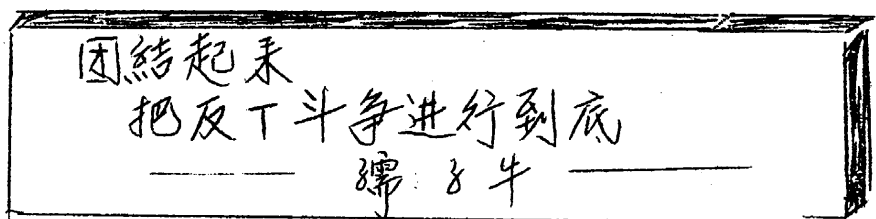 团結起来
把反T斗争进行到底
—— 孺子牛 ——